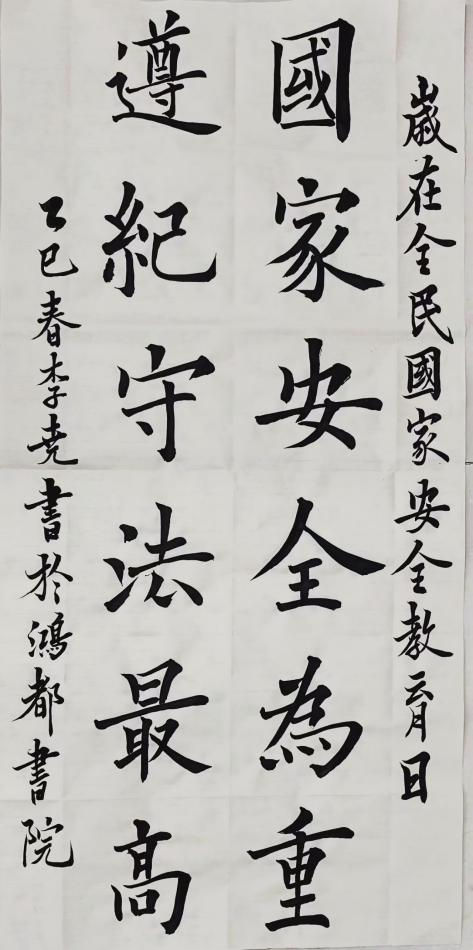 歲在全民國家安全教育日
國家安全為重
遵紀守法最高
乙巳春李尭書於鴻都書院